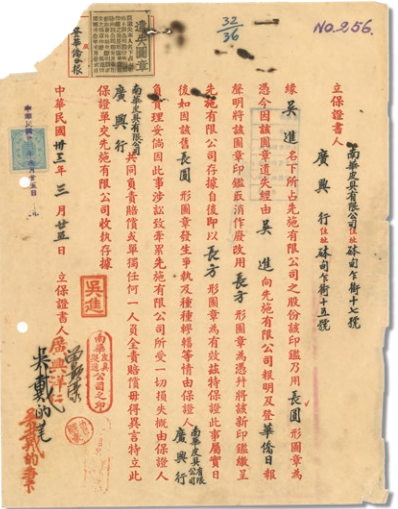 遺失圖章
華僑日報
32/36
No.256.
立保證書人
南華皮具有限公司住址砵甸乍街十七號
廣興行住址砵甸乍街十五號
緣吳進名下所占先施有限公司之股份該印鑑乃用長圓形圖章為
憑今因該圖章遺失經由吳進向先施有限公司報明及登華僑日報
聲明將該圖章印鑑取消作廢改用長方形圖章為憑幷將該新印鑑繳呈
先施有限公司存據自後即以長方形圖章為有效茲特保證此事屬實日
後如因該舊長圓形圖章發生爭執及種種轇轕等情由保證人南華皮具有限公司廣興行
負責理妥倘因此事涉訟致牽累先施有限公司所受一切損失概由保證人
南華皮具有限公司廣興行共同負責賠償或單獨任何一人員全責賠償毋得異言特立此
保證單交先施有限公司收執存據
中華民國卅三年三月廿五日立保證書人廣興洋行
吳進
南華皮具
公司之印